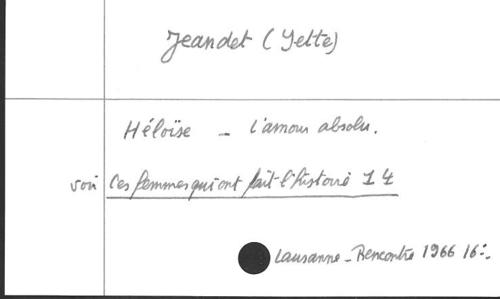 Jeandet (Yette)
Héloïse - L'amour absolu.
voir Ces femmes qui ont fait l'histoire 14
Lausanne - Rencontre 1966 16:-